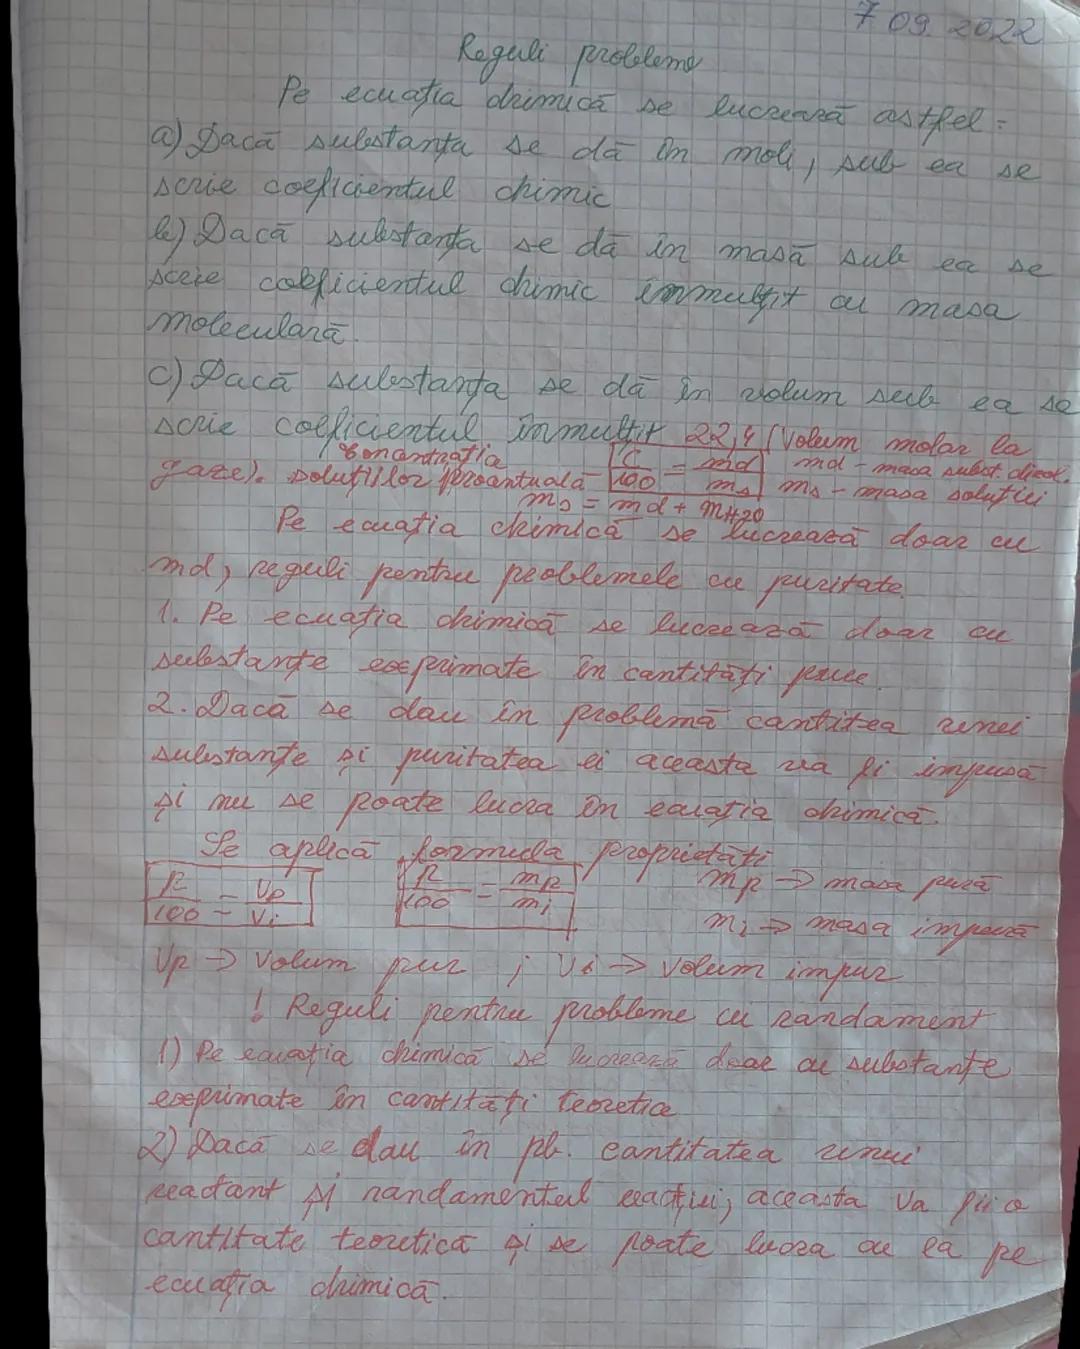 7 09. 2022
Reguli probleme
Pe ecuația chimică se lucrează astfel:
a) Dacă substanța se dă în moli, sub ea se
scrie coeficientul chimic
b) Dacă substanța se dă în masă sub ea se
scrie coeficientul chimic înmulțit cu masa
moleculară.
c) Dacă substanța se dă în volum sub ea se
scrie coeficientul înmulțit 22,4 (Volum molar la
gaze). Concentrația soluțiilor procentuală - C/100 = md/ms md - masa subst. dizol.
ms - masa soluției
ms = md + mH2O
Pe ecuația chimică se lucrează doar cu
md, reguli pentru problemele cu puritate.
1. Pe ecuația chimică se lucrează doar cu
substanțe exprimate în cantități pure.
2. Dacă se dau în problemă cantitea unei
substanțe și puritatea ei aceasta va fi impusă
și nu se poate lucra în ecuația chimică.
Se aplică formula proprietăți
P/100 = Vp/Vi P/100 = mp/mi mp → masa pură
mi → masa impură
Vp → Volum pur ; Vi → Volum impur
! Reguli pentru probleme cu randament
1) Pe ecuația chimică se lucrează doar cu substanțe
exprimate în cantități teoretice
2) Dacă se dau în pb. cantitatea unui
reactant și randamentul reacției, aceasta va fii o
cantitate teoretică și se poate lucra cu ea pe
ecuația chimică.